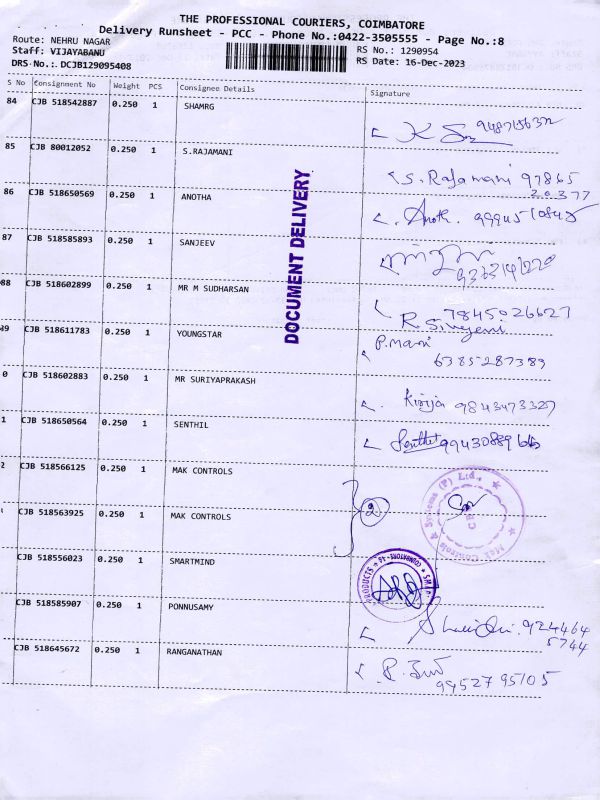 THE PROFESSIONAL COURIERS, COIMBATORE
Delivery Runsheet - PCC - Phone No.:0422-3505555 - Page No.:8
Route: NEHRU NAGAR
RS No.: 1290954
Staff: VIJAYABANU
RS Date: 16-Dec-2023
DRS No.: DCJB129095408
S No Consignment No Weight PCS Consignee Details Signature
84 CJB 518542887 0.250 1 SHAMRG
85 CJB 80012052 0.250 1 S.RAJAMANI S. Rajamani 97865
20377
86 CJB 518650569 0.250 1 ANOTHA
87 CJB 518585893 0.250 1 SANJEEV
88 CJB 518602899 0.250 1 MR M SUDHARSAN 7845026627
89 CJB 518611783 0.250 1 YOUNGSTAR P.Mani
6385287389
0 CJB 518602883 0.250 1 MR SURIYAPRAKASH 9843473327
1 CJB 518650564 0.250 1 SENTHIL Senthil
2 CJB 518566125 0.250 1 MAK CONTROLS
CJB 518563925 0.250 1 MAK CONTROLS 2
CJB 518556023 0.250 1 SMARTMIND
CJB 518585907 0.250 1 PONNUSAMY 924464
5744
CJB 518645672 0.250 1 RANGANATHAN
9952795105
DOCUMENT DELIVERY